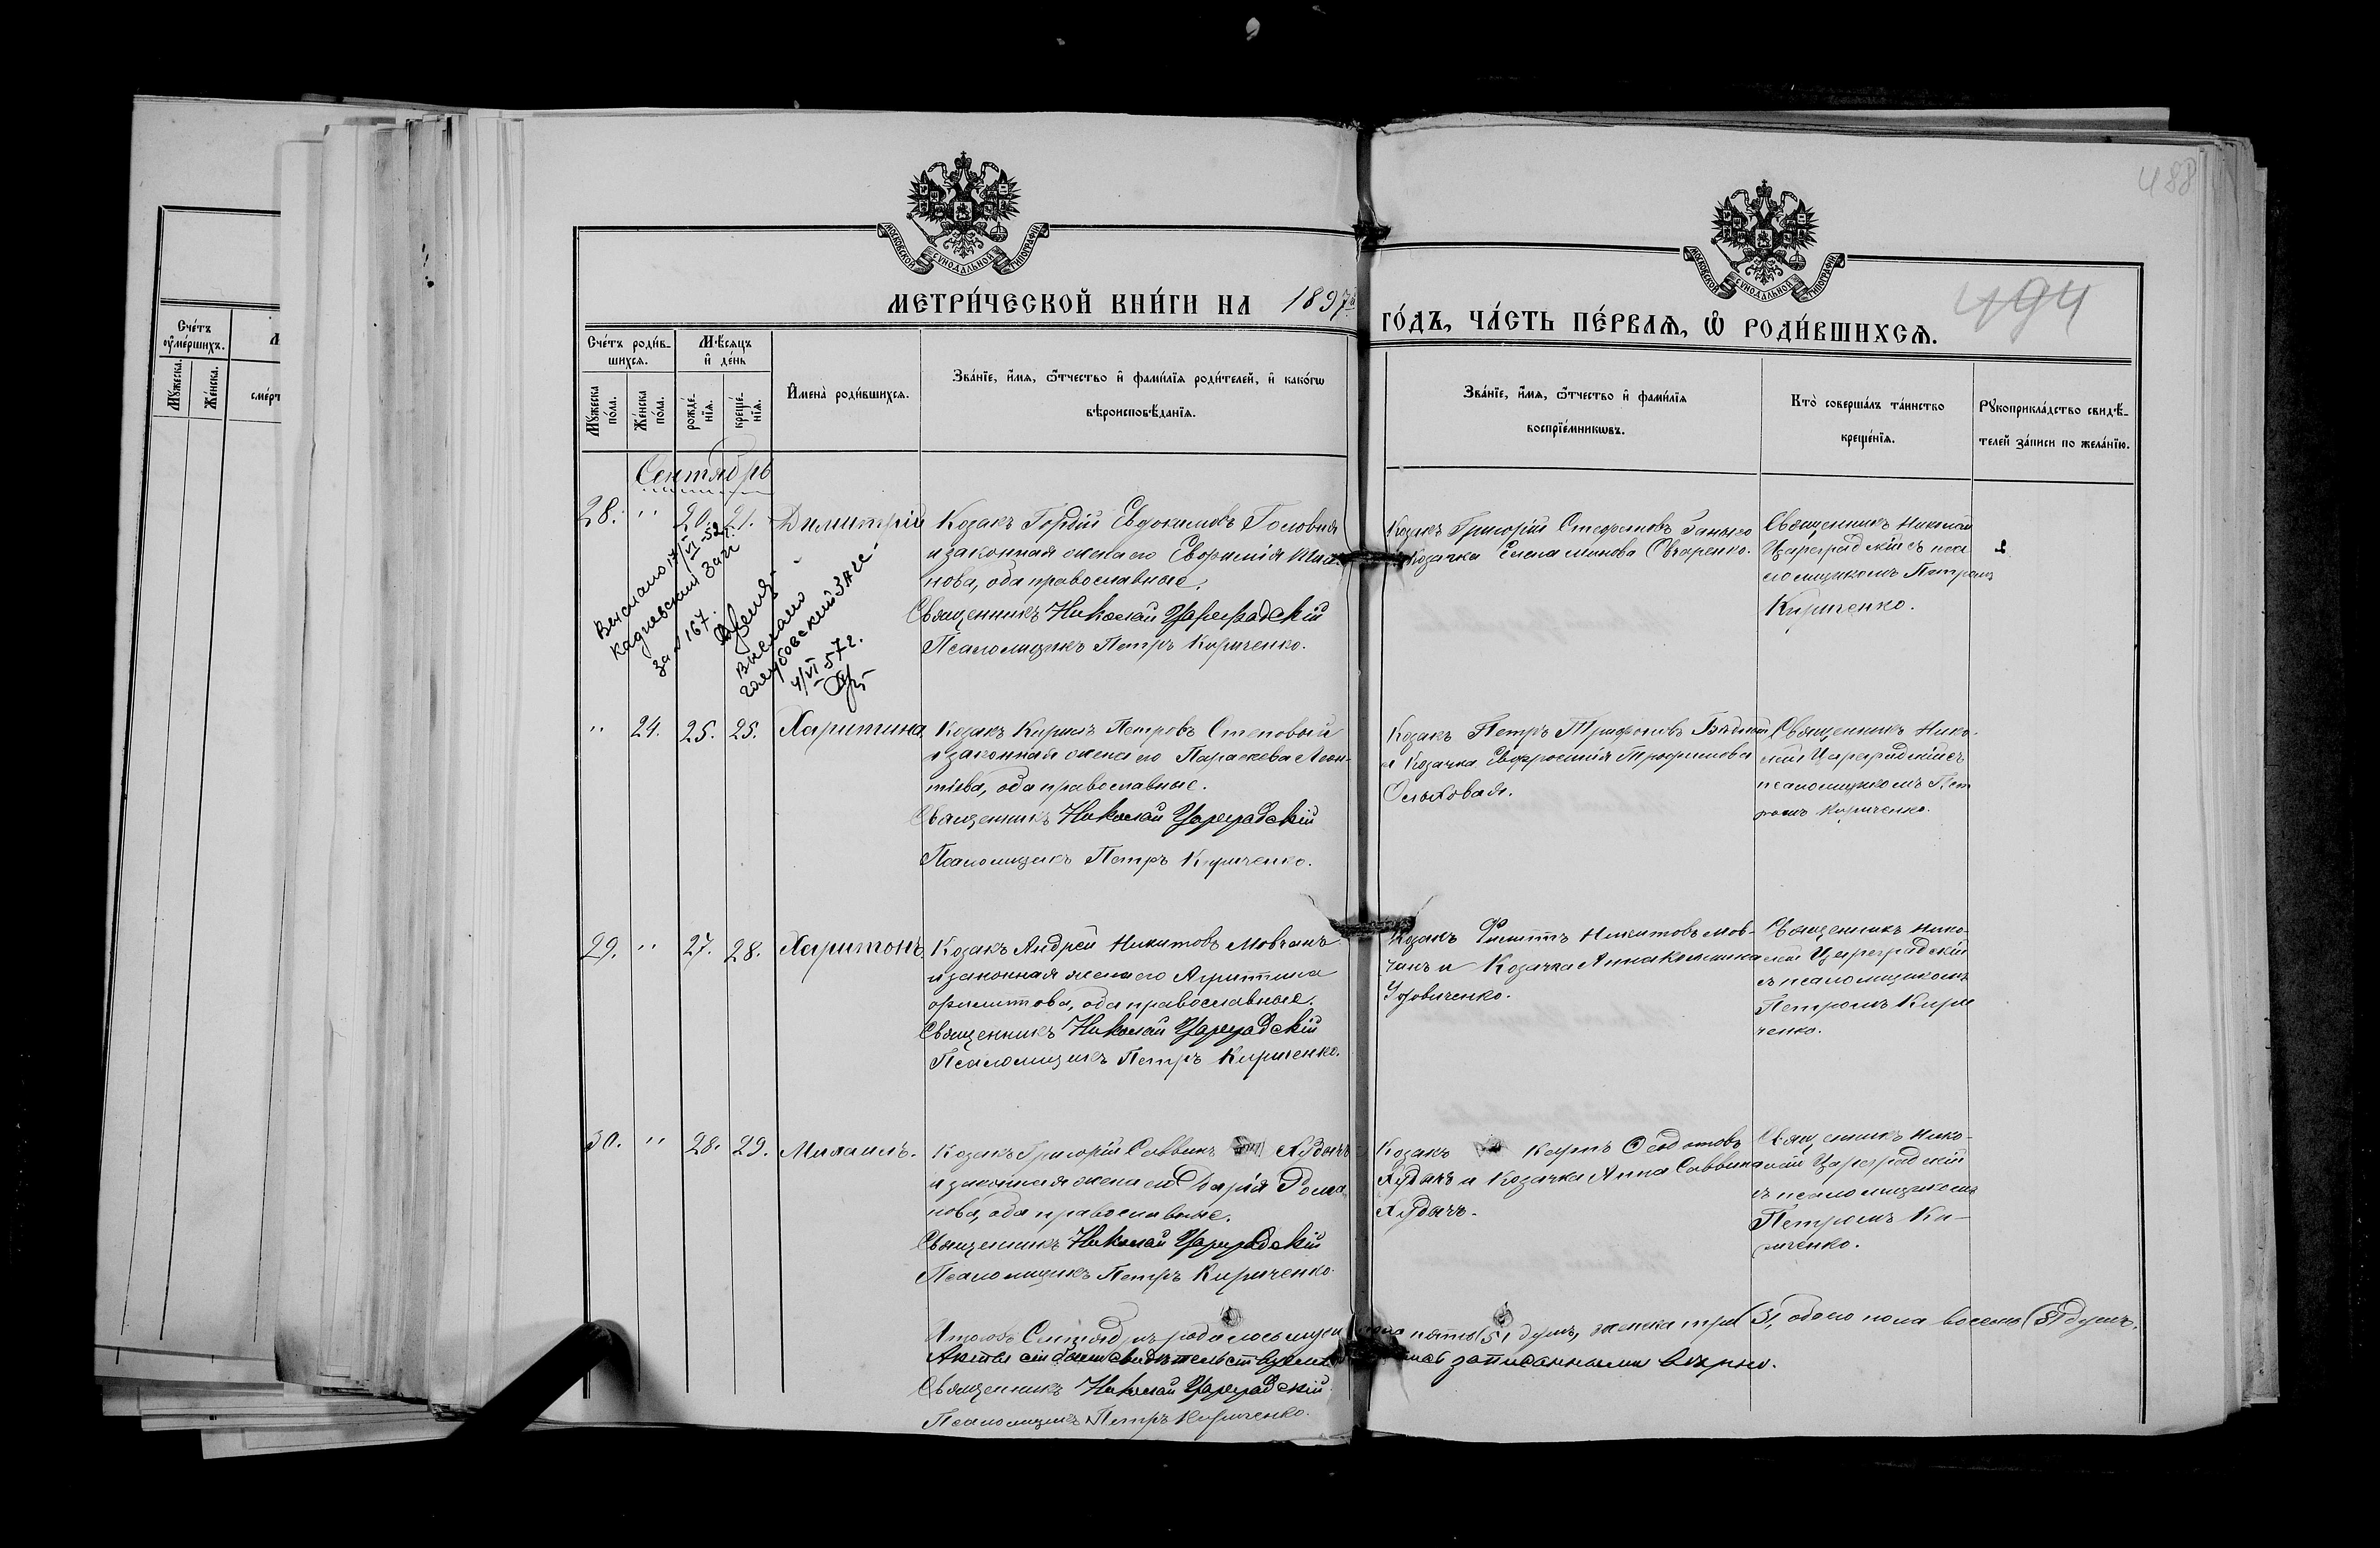 488
494
МОСКОВСКОЙ СѴНОДАЛЬНОЙ ТИПОГРАФІИ
МОСКОВСКОЙ СѴНОДАЛЬНОЙ ТИПОГРАФІИ
Сче́тъ
ᲂу҆ме́ршихъ.
Мꙋ́жеска.
Же́нска.
МЕТРИ́ЧЕСКОЙ КНИ́ГИ НА 1897
ГО́ДЪ, ЧА́СТЬ ПЕ́РВАѦ, Ѽ РОДИ́ВШИХСѦ.
Сче́тъ роди́в-
шихсѧ.
Мꙋ́жеска
по́ла.
Же́нска
по́ла.
Мѣ́сяцъ
и҆ де́нь
рожде́-
нїѧ.
креще́-
нїѧ.
И҆мена̀ роди́вшихсѧ.
Зва́нїе, и҆́мѧ, ѻ҆́тчество и҆ фами́лїѧ роди́телей, и҆ како́гѡ
вѣроисповѣ́данїѧ.
Зва́нїе, и҆́мѧ, ѻ҆́тчество и҆ фами́лїѧ
воспрїе́мникѡвъ.
Кто̀ соверша́лъ та́инство
креще́нїѧ.
Рꙋкоприкла́дство свидѣ́-
телей за́писи по жела́нїю.
Сентябрь
28. " 20. 21. Димитрій
Козакъ Гордій Евдокимовъ Головня
и законная жена его Евфимія
нова, оба православные.
Священникъ Николай Цареградскій
Псаломщикъ Петръ Кириченко.
Козакъ Григорій Стефановъ
Козачка Елена Овчаренко.
Священникъ Николай
Цареградскій съ пса
ломщикомъ Петромъ
Кириченко.
Выслано 17/VI-52г.
Кадиевский Загс
за № 167.
Выслано
голубовский ЗАГС
4/VI-57г.
" 24. 25. 25. Харитина
Козакъ Кирилъ Петровъ Степовый
и законная жена его Параскева Леон-
тіева, оба православные.
Священникъ Николай Цареградскій
Псаломщикъ Петръ Кириченко.
Козакъ Петръ Трифоновъ
и Козачка Евфросинія Трофимова
Ольховая.
Священникъ Нико-
лай Цареградскій съ
псаломщикомъ Пет
ромъ Кириченко.
29. " 27. 28. Харитонъ
Козакъ Андрей Никитовъ Мовчанъ
и законная жена его Агриппина
Филиппова, оба православные.
Священникъ Николай Цареградскій
Псаломщикъ Петръ Кириченко.
Козакъ Филиппъ Никитовъ Мов-
чанъ и Козачка Анна
Удовиченко.
Священникъ Нико-
лай Цареградскій
съ псаломщикомъ
Петромъ Кири
ченко.
30. " 28. 29. Михаилъ.
Козакъ Григорій Саввинъ
и законная жена его Дарія Рома
нова, оба православные.
Священникъ Николай Цареградскій
Псаломщикъ Петръ Кириченко.
Козакъ Карпъ Феодотовъ
и Козачка Анна Саввина
Священникъ Нико-
лай Цареградскій
съ псаломщикомъ
Петромъ Ки-
риченко.
Итого въ Сентябрѣ родилось пола пять (5) душъ, женска три (3), обоего пола восемь (8) душъ.
Акты сіи записанными вѣрно.
Священникъ Николай Цареградскій
Псаломщикъ Петръ Кириченко.